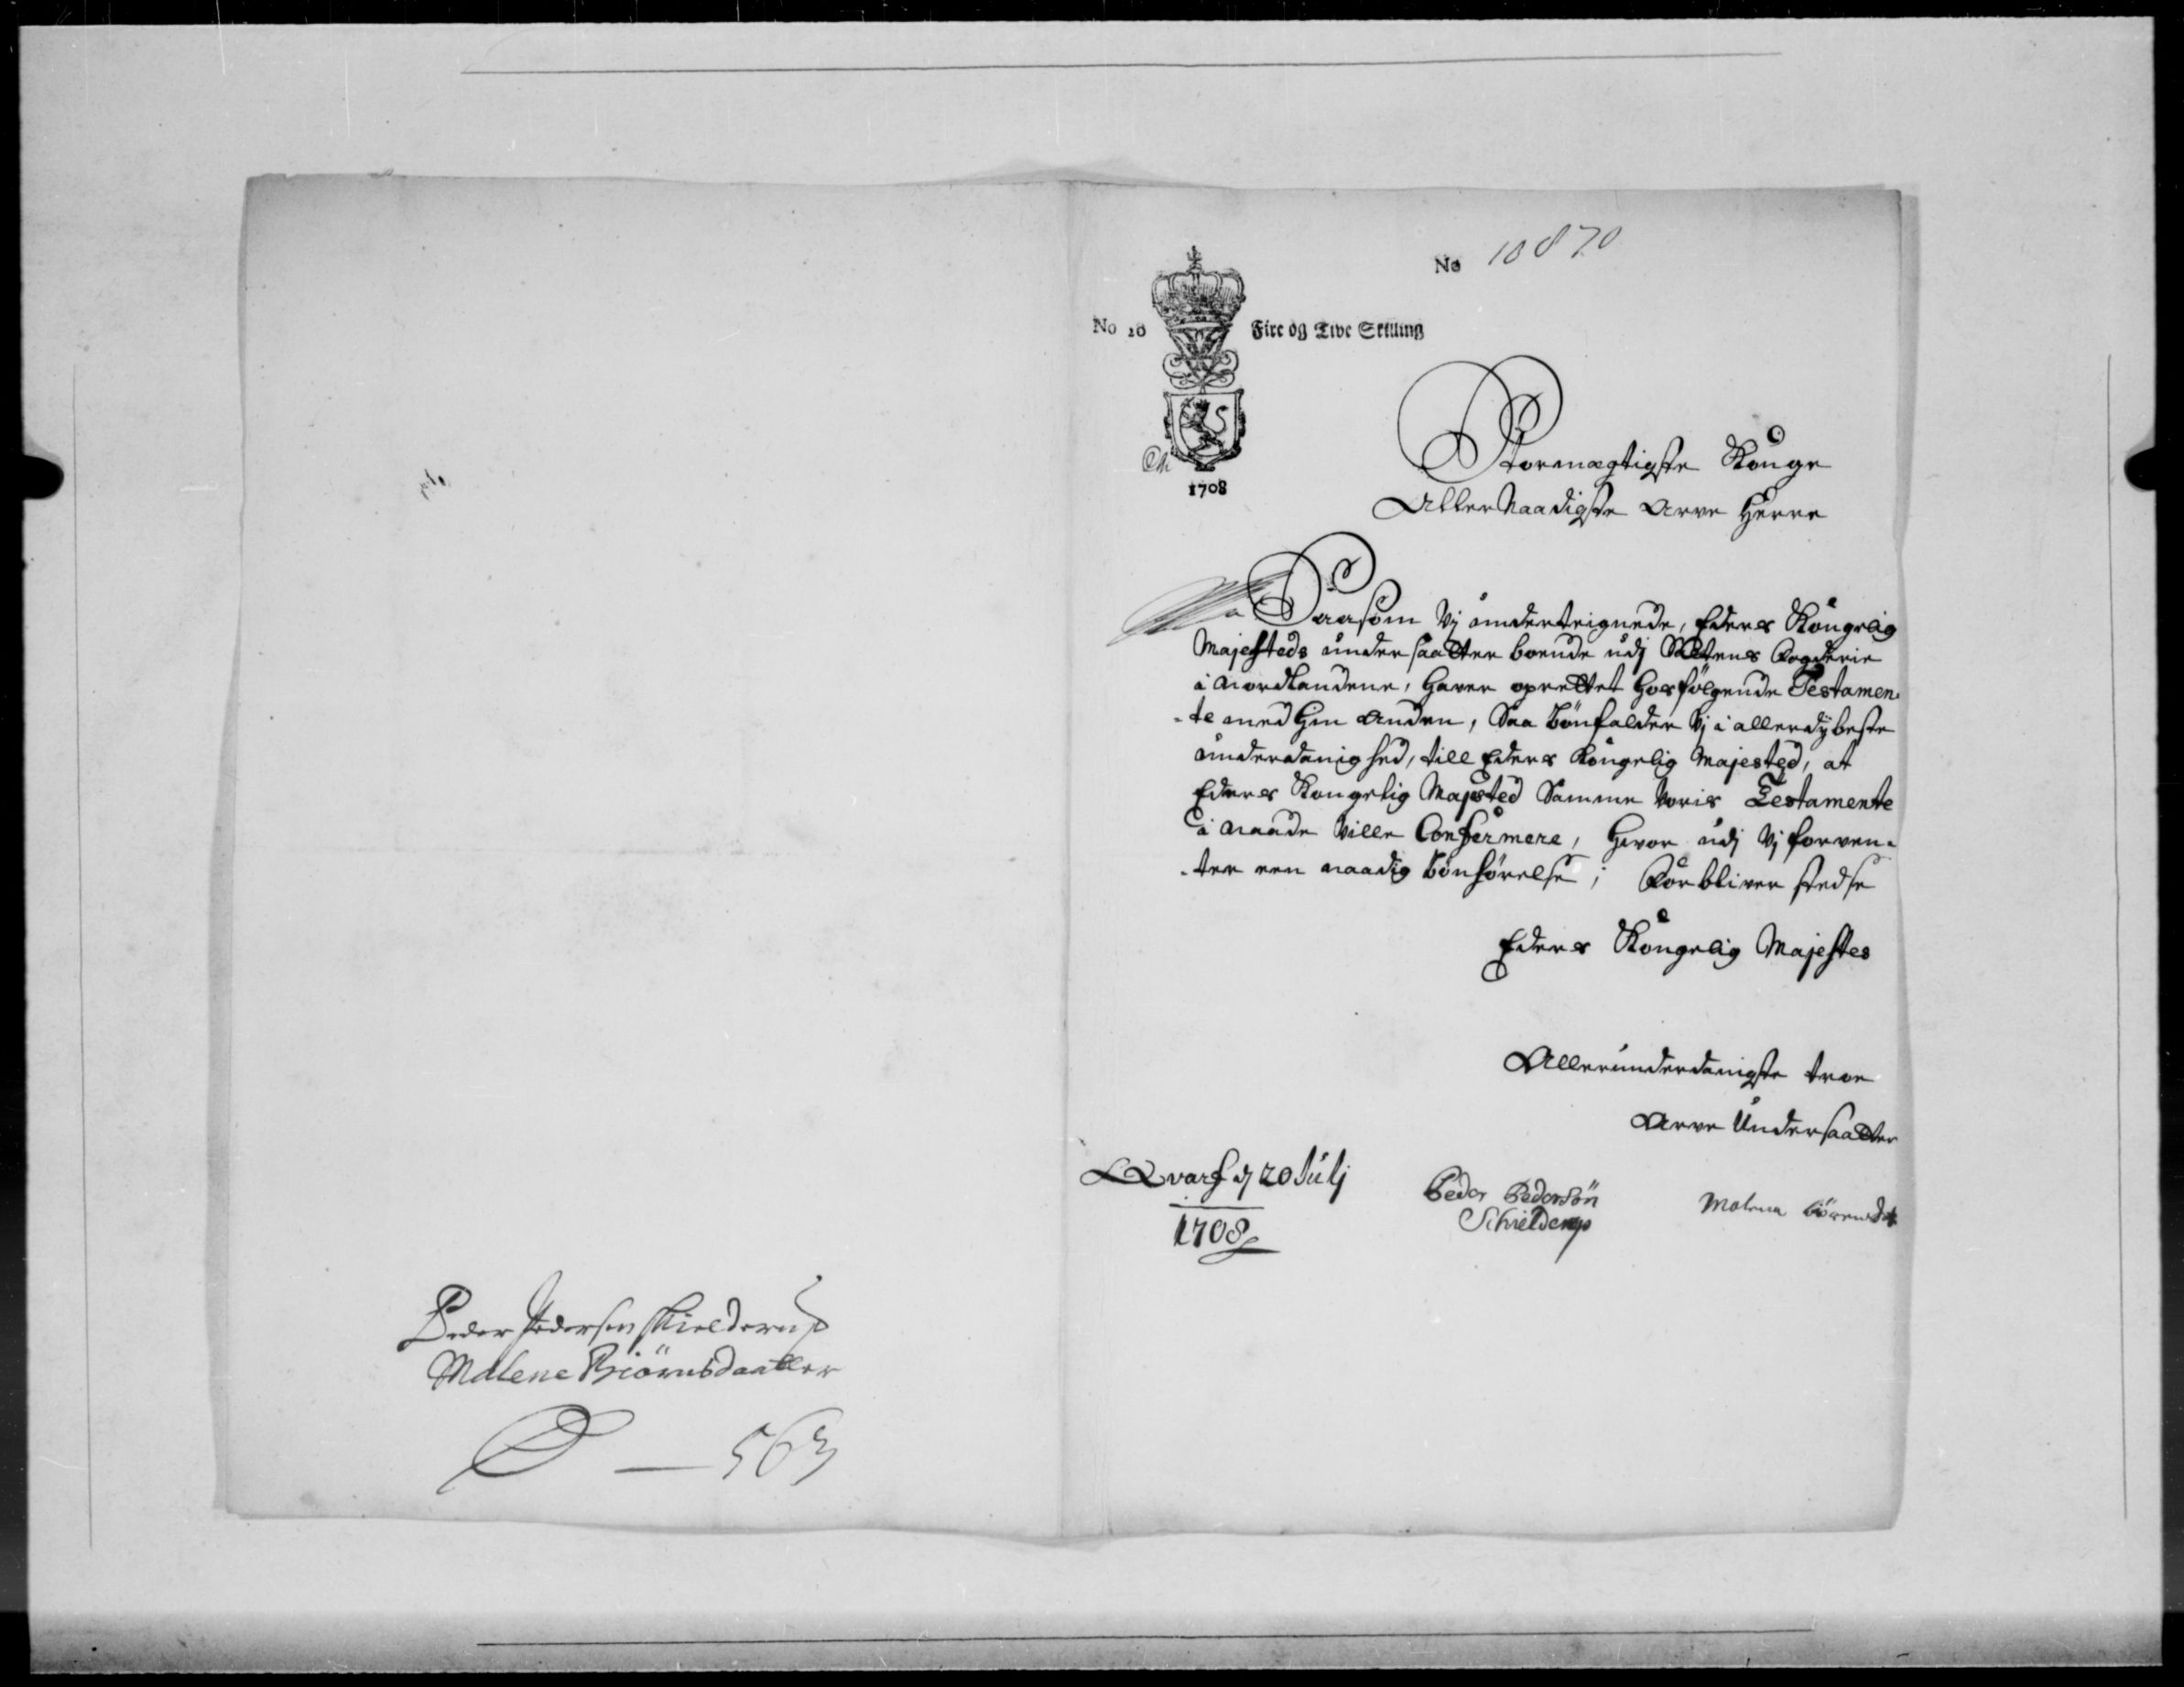 No 10870
No 10
Fire og Tive Skilling
1708
Stormægtigste Konge
Allernaadigste Arve Herre
Saasom Vj underteignede, Eders Kongelig
Majesteds undersaatter boende udj Saltens Fogderie
i Nordlandene, hawer oprettet hosfølgende Testamen-
-te med hin anden, Saa bönfalder Vj i allerdÿbeste
underdanighed, till Eders Kongelig Majested, at
Eders Kongelig Majested Samme voris Testamente
i Naade Ville Confermere, hvor udj Vj forven-
-ter een naadig bönhörelse; Forbliver stedse
Eders Kongelig Majestes
Allerunderdanigste troe
Arve Undersaatter
Qvarf d 20 Julj
1708
Peder Pedersön
Schielderup
Malena
Peder Pedersen Skielderup
Malene Biörnsdaatter
563